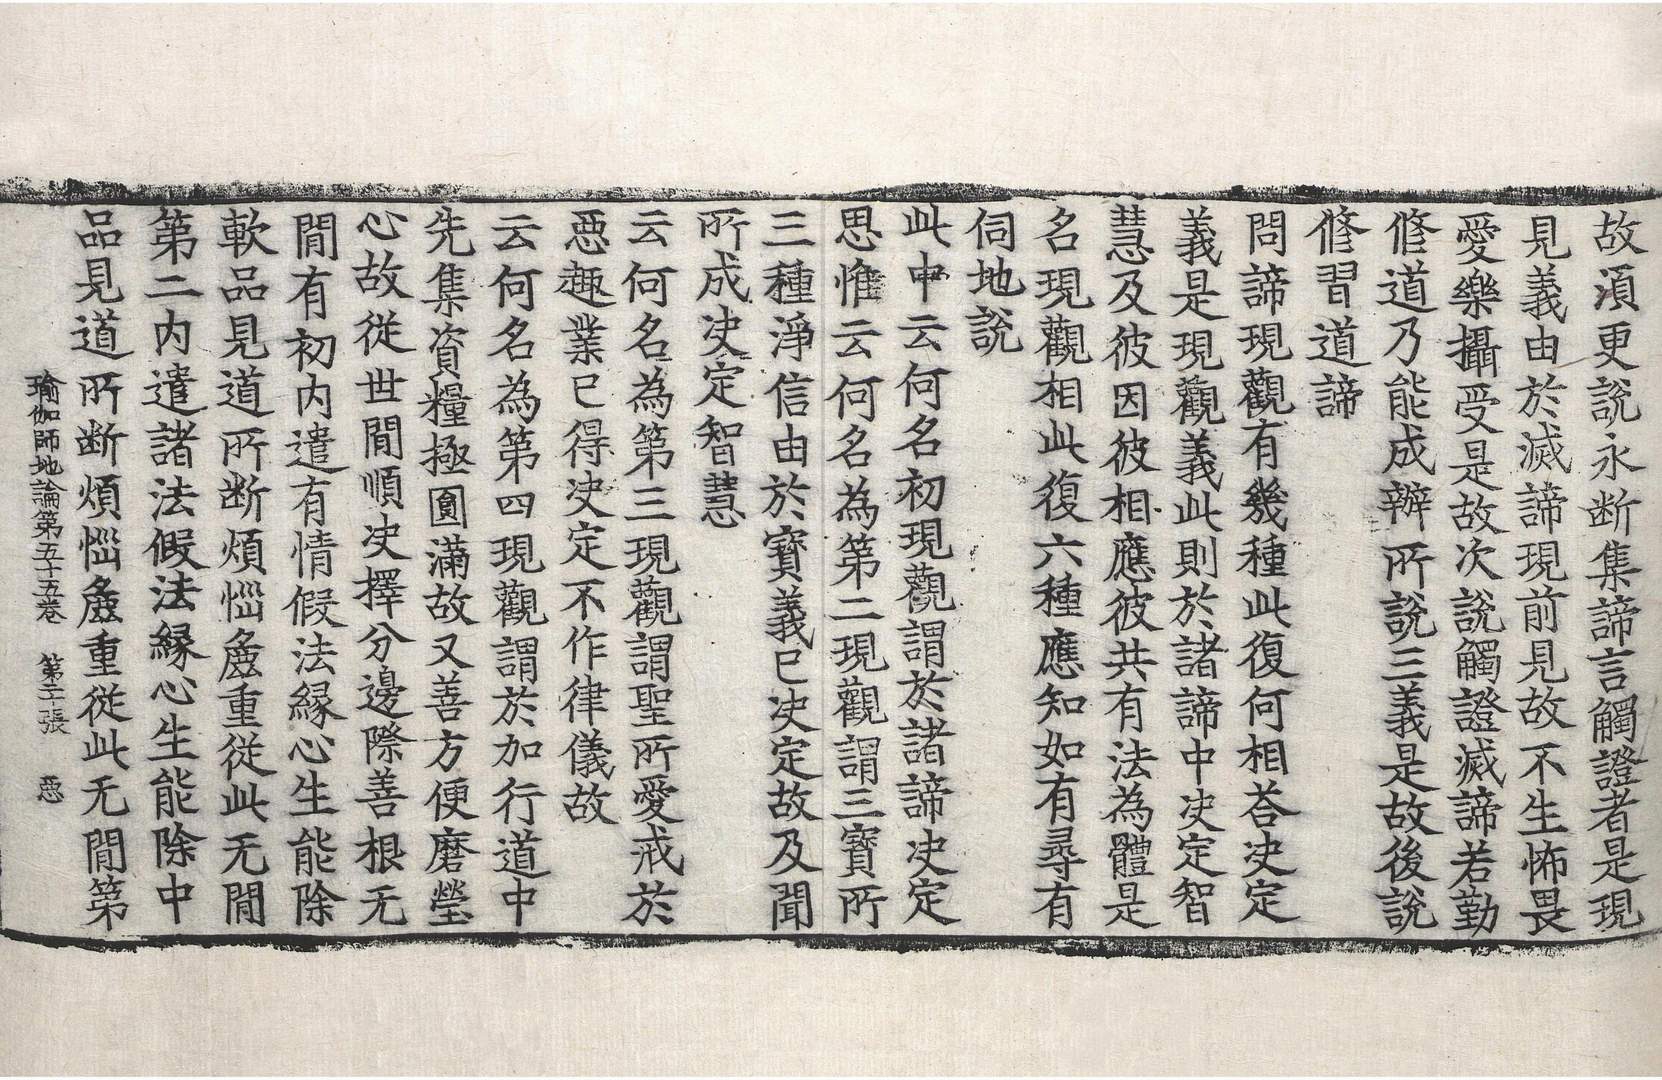 故湏更說永断集諦言觸證者是現
見義由於滅諦現前見故不生怖畏
愛樂攝受是故次說觸證滅諦若勤
修道乃能成辦所說三義是故後說
修習道諦
問諦現觀有幾種此復何相荅決定
義是現觀義此則於諸諦中決定智
慧及彼因彼相應彼共有法為體是
名現觀相此復六種應知如有尋有
伺地說
此中云何名初現觀謂於諸諦決定
思惟云何名為第二現觀謂三寶所
三種淨信由於寶義已決定故及聞
所成決定智慧
云何名為第三現觀謂聖所愛戒於
惡趣業已得決定不作律儀故
云何名為第四現觀謂於加行道中
先集資糧極圓滿故又善方便磨瑩
心故從世間順決擇分邊際善根无
間有初内遣有情假法緣心生能除
軟品見道所断煩惱麁重從此无間
第二内遣諸法假法緣心生能除中
品見道所断煩惱麁重從此无間第
瑜伽師地論第五十五卷　第二十張　惡